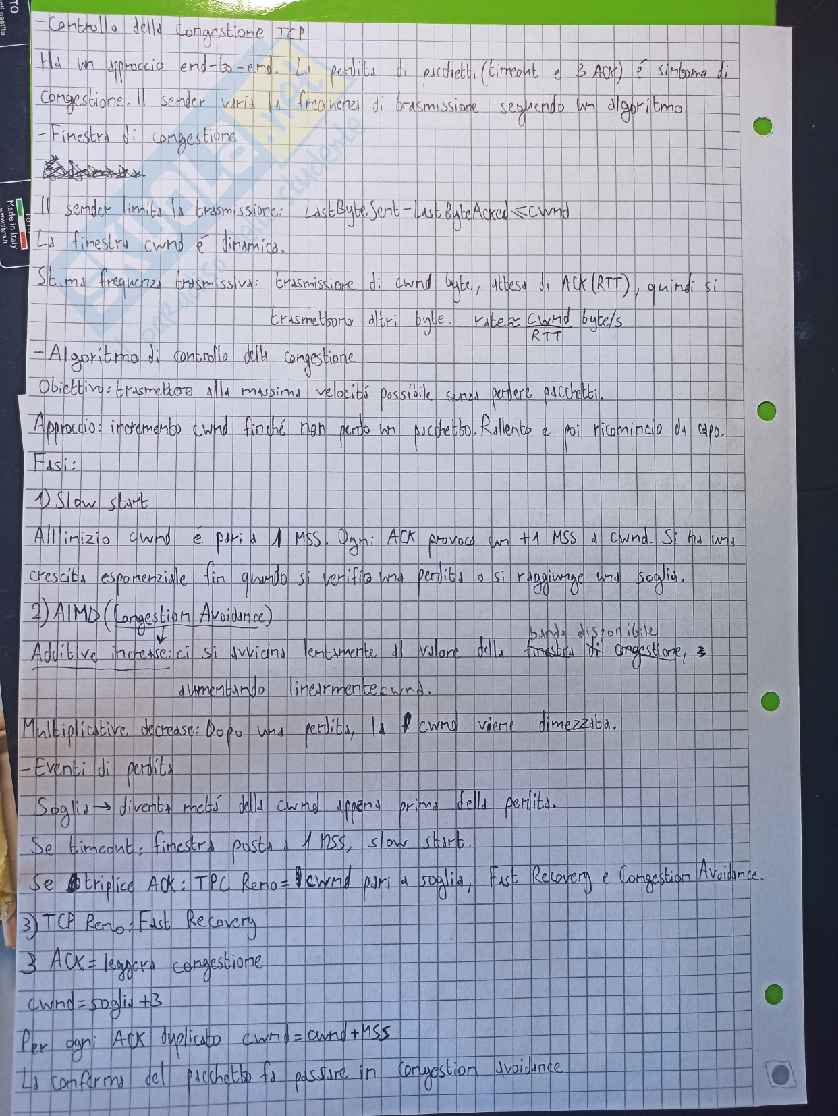 -Controllo della congestione TCP
Ha un approccio end-to-end. La perdita di pacchetti (timeout e 3 ACK) é sintomo di
congestione. Il sender varia la frequenza di trasmissione seguendo un algoritmo
-Finestra di congestione
Il sender limita la trasmissione: LastByteSent-LastByteAcked ≤ cwnd
La finestra cwnd é dinamica.
Stima frequenza trasmissiva: trasmissione di cwnd byte, attesa di ACK (RTT), quindi si
trasmettono altri byte. rate ≈ cwnd/RTT byte/s
-Algoritmo di controllo della congestione
Obiettivo: trasmettere alla massima velocitá possibile senza perdere pacchetti.
Approccio: incremento cwnd finché non perdo un pacchetto. Rallento e poi ricomincio da capo.
Fasi:
1) Slow start
All'inizio cwnd é pari a 1 MSS. Ogni ACK provoca un +1 MSS a cwnd. Si ha una
crescita esponenziale fin quando si verifica una perdita o si raggiunge una soglia.
2) AIMD (Congestion Avoidance)
banda disponibile
Additive increase: ci si avvicina lentamente al valore della finestra di congestione,
aumentando linearmente cwnd.
Multiplicative decrease: Dopo una perdita, la cwnd viene dimezzata.
-Eventi di perdita
Soglia → diventa metá della cwnd appena prima della perdita.
Se timeout: finestra posta a 1 MSS, slow start
Se triplice ACK: TPC Reno = cwnd pari a soglia, Fast Recovery e Congestion Avoidance.
3) TCP Reno: Fast Recovery
3 ACK = leggera congestione
cwnd = soglia +3
Per ogni ACK duplicato cwnd = cwnd + MSS
La conferma del pacchetto fa passare in congestion avoidance
Made in Italy